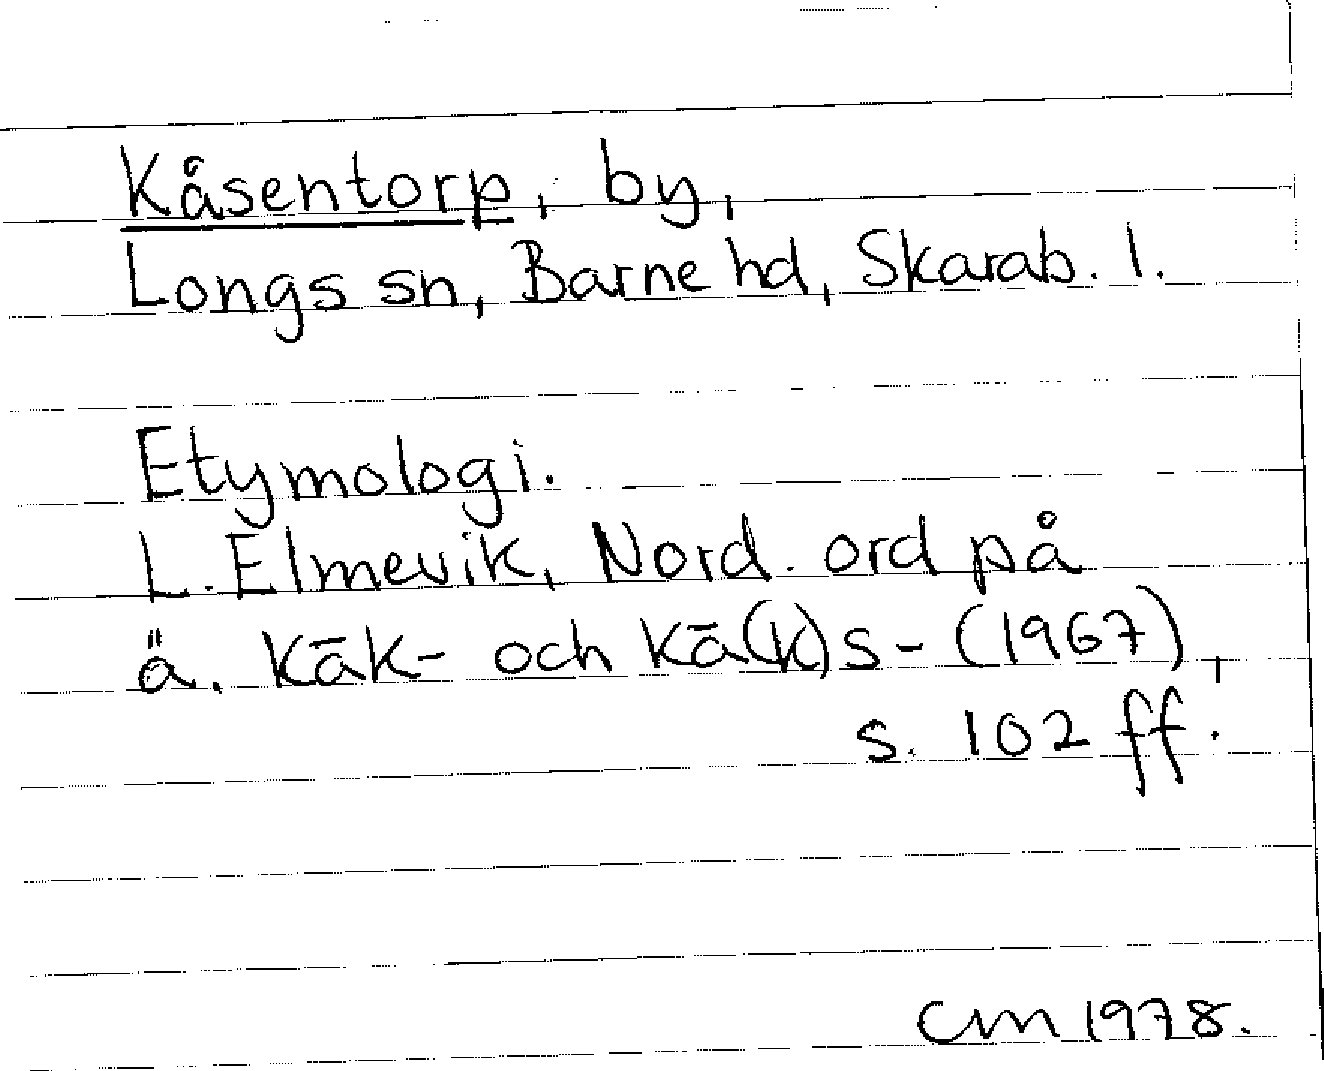 Kåsentorp, by,
Longs sn, Barne hd, Skarab. l.
Etymologi.
L. Elmevik, Nord. ord på
ä. kāk- och kā(k)s- (1967),
s. 102 ff.
CM 1978.